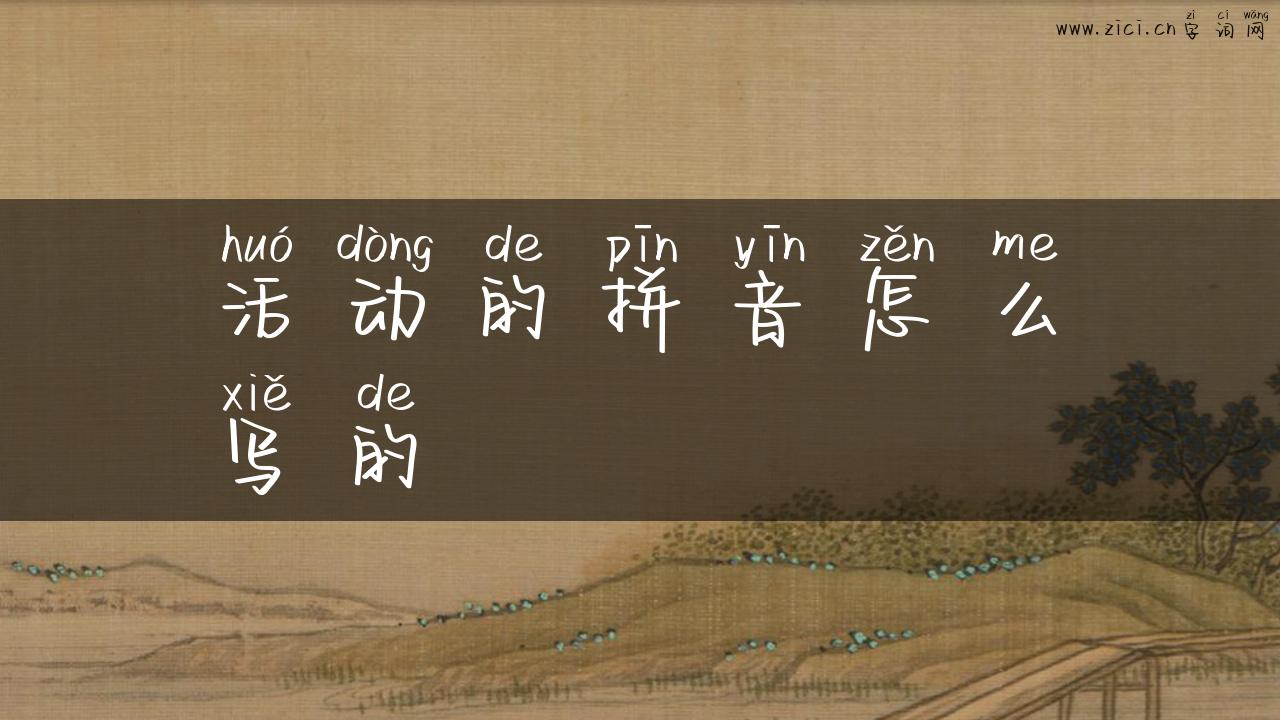 zì cí wǎng
www.zici.cn 字 词 网
huó dòng de pīn yīn zěn me
活 动 的 拼 音 怎 么
xiě de
写 的